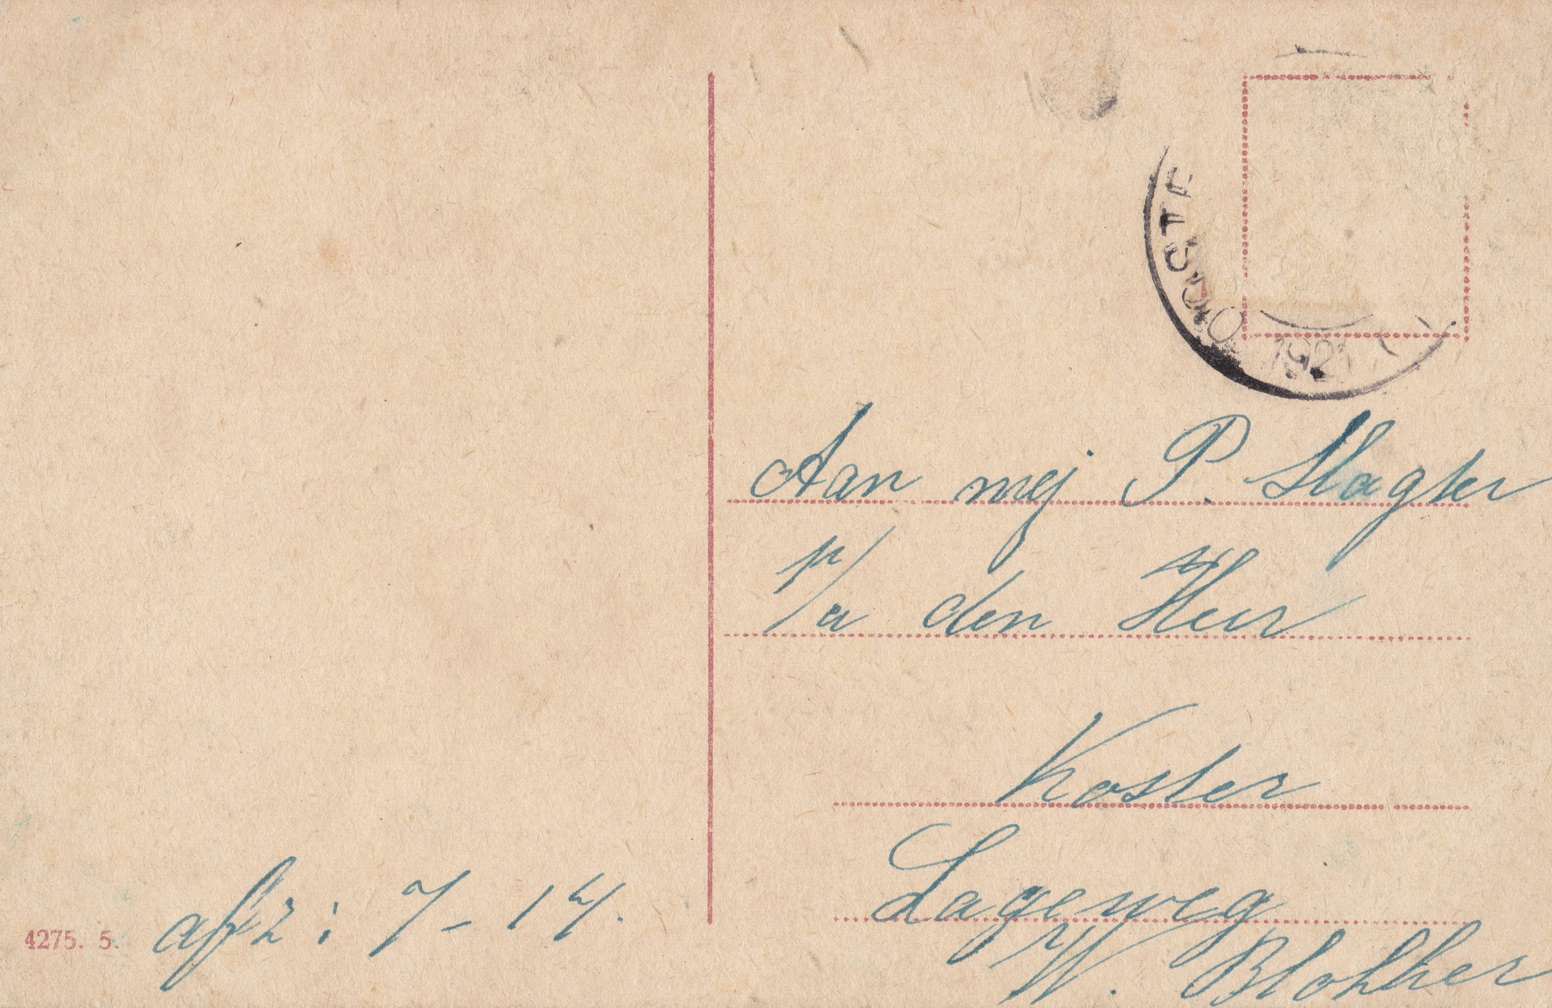 OOSTE
1921
Aan mej P. Slagter
p/a den Heer
Koster
Lageweg
W. Blokker
afz: 7-14.
4275. 5.